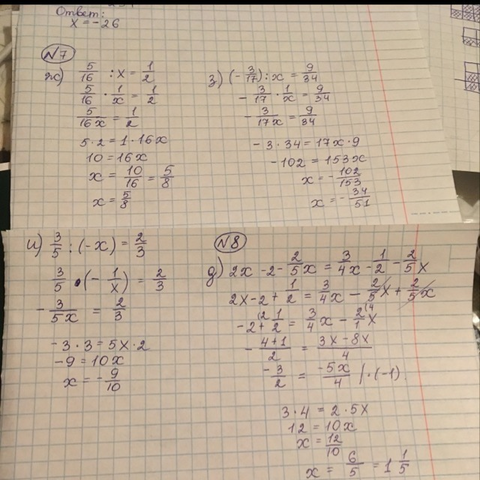 Ответ:
x = -26
№7
ж) 5/16 : x = 1/2
5/16 · 1/x = 1/2
5/16x = 1/2
5·2 = 1·16x
10 = 16x
x = 10/16 = 5/8
x = 5/8
з) (-3/17) : x = 9/34
-3/17 · 1/x = 9/34
-3/17x = 9/34
-3·34 = 17x·9
-102 = 153x
x = -102/153
x = -34/51
и) 3/5 : (-x) = 2/3
3/5 · (-1/x) = 2/3
-3/5x = 2/3
-3·3 = 5x·2
-9 = 10x
x = -9/10
№8
д) 2x - 2 - 2/5x = 3/4x - 1/2 - 2/5x
2x - 2 + 1/2 = 3/4x - 2/5x + 2/5x
-2 + 1/2 = 3/4x - 2/1x
-4+1/2 = 3x - 8x/4
-3/2 = -5x/4 |·(-1)
3·4 = 2·5x
12 = 10x
x = 12/10
x = 6/5 = 1 1/5